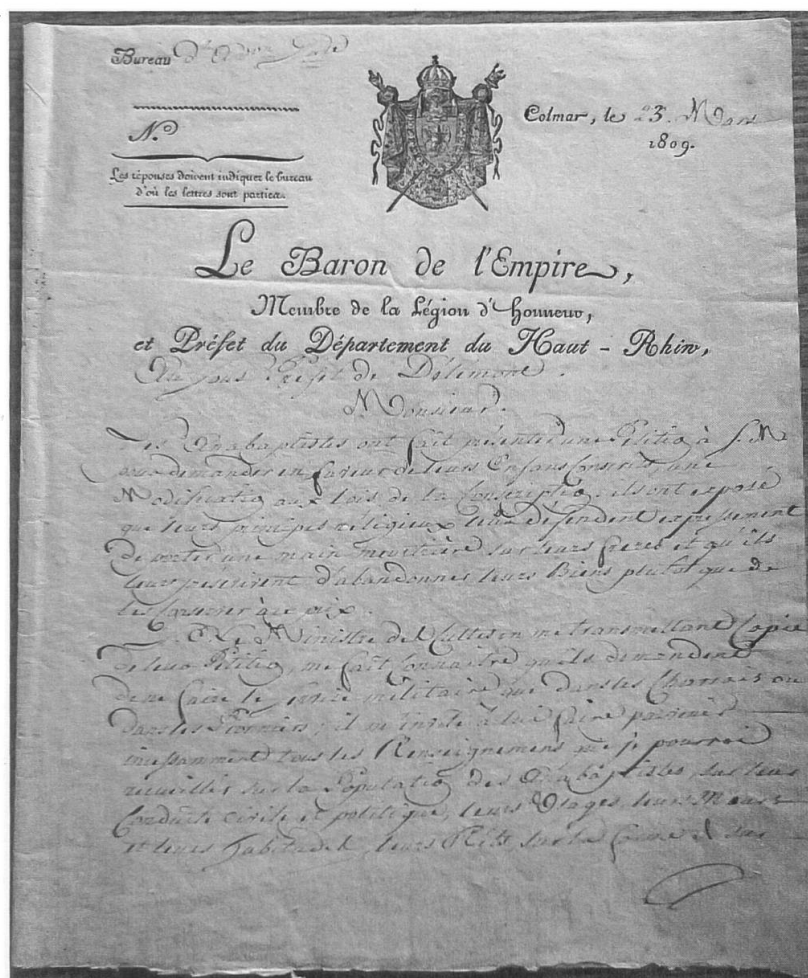 Bureau d'
Colmar, le 23. Mars
1809.
N.º
Les réponses doivent indiquer le bureau
d'où les lettres sont parties.
Le Baron de l'Empire,
Membre de la Légion d'honneur,
et Préfet du Département du Haut-Rhin,
Au sous Préfet de Délémont.
Monsieur.
Les Anabaptistes ont fait présenter une Pétitio à S. M.
pour demander en faveur de leurs Enfans Conscrits une
Modificatio aux lois de la Conscriptio, ils ont exposé
que leurs principes réligieux leur défendent expressement
de porter une main meurtrière sur leurs freres et qu'ils
leur préscrivent d'abandonner leurs Biens plutôt que de
les conserver à ce prix.
Le Ministre des Cultes en me transmettant Copie
de leur Pétitio, me fait connaitre qu'ils demandent
de ne faire le service militaire que dans les Charrois ou
dans les Pionniers; il m'invite à lui faire parvenir
incessamment tous les Renseignemens que je pourrai
recueillir sur la Populatio des Anabaptistes, sur leur
Conduite civile et politique, leurs Usages, leurs Mœurs
et leurs habitudes, leurs Rits sur la et sur